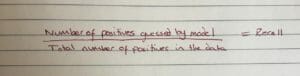 Number of positives guessed by model = Recall
Total number of positives in the data